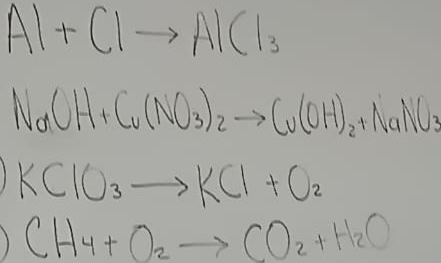 Al + Cl → AlCl₃
NaOH + Cu(NO₃)₂ → Cu(OH)₂ + NaNO₃
) KClO₃ → KCl + O₂
) CH₄ + O₂ → CO₂ + H₂O